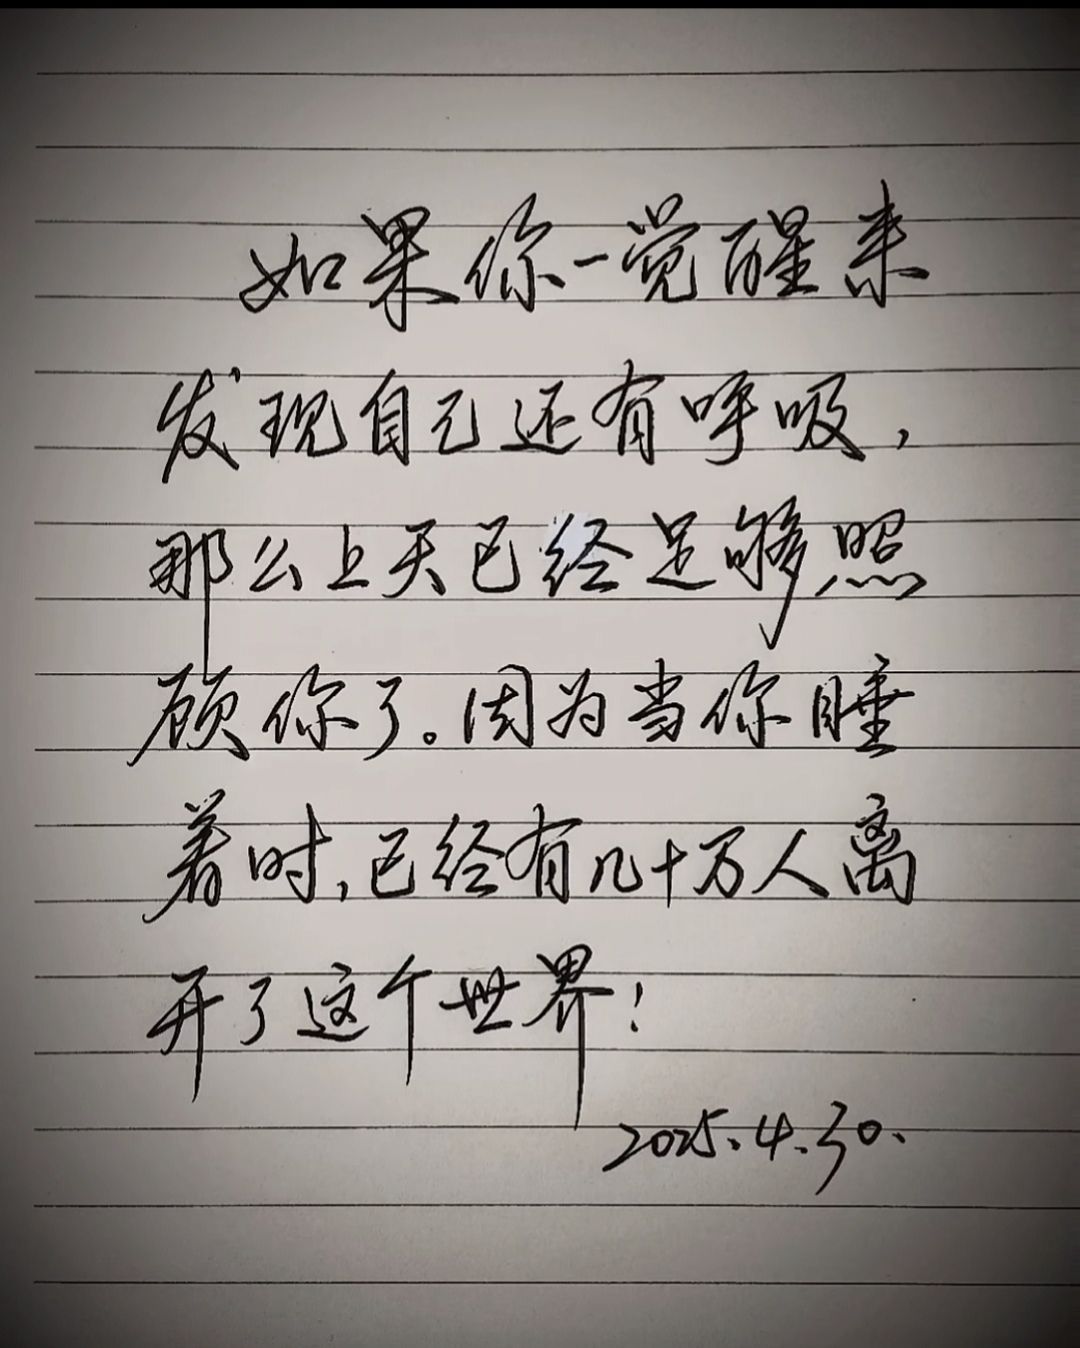 如果你一觉醒来
发现自己还有呼吸，
那么上天已经足够照
顾你了。因为当你睡
着时，已经有几十万人离
开了这个世界！
2025.4.30.